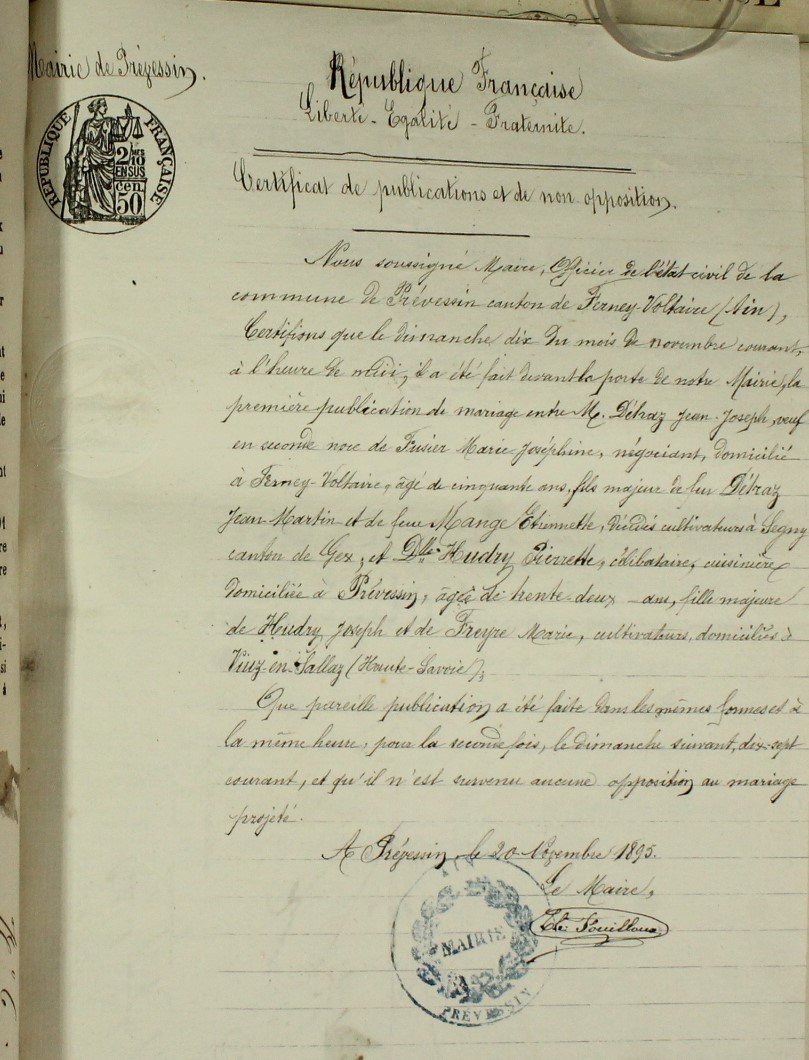 Mairie de Prévessin.
République Française
Liberté - Egalité - Fraternité.
RÉPUBLIQUE FRANÇAISE
2/10
EN SUS
cen.
50
Certificat de publications et de non opposition.
Nous soussigné Maire, Officier de l'état civil de la
commune de Prévessin canton de Ferney-Voltaire (Ain),
Certifions que le dimanche dix du mois de novembre courant,
à l'heure de midi, il a été fait devant la porte de notre Mairie, la
première publication de mariage entre M. Détraz Jean-Joseph, veuf
en seconde noce de Fusier Marie Joséphine, négociant, domicilié
à Ferney-Voltaire, âgé de cinquante ans, fils majeur de feu Détraz
Jean-Martin et de feue Mange Etiennette, décédés cultivateurs à Segny
canton de Gex, et Dlle Hudry Pierrette, célibataire, cuisinière
domiciliée à Prévessin, âgée de trente-deux ans, fille majeure
de Hudry Joseph et de Freyre Marie, cultivateurs, domiciliés à
Viuz-en-Sallaz (Haute-Savoie);
Que pareille publication a été faite dans les mêmes formes et à
la même heure, pour la seconde fois, le dimanche suivant, dix-sept
courant, et qu'il n'est survenu aucune opposition au mariage
projeté.
A Prévessin le 20 Novembre 1895.
Le Maire,
Fouilloux
AIN
MAIRIE
PREVESSIN